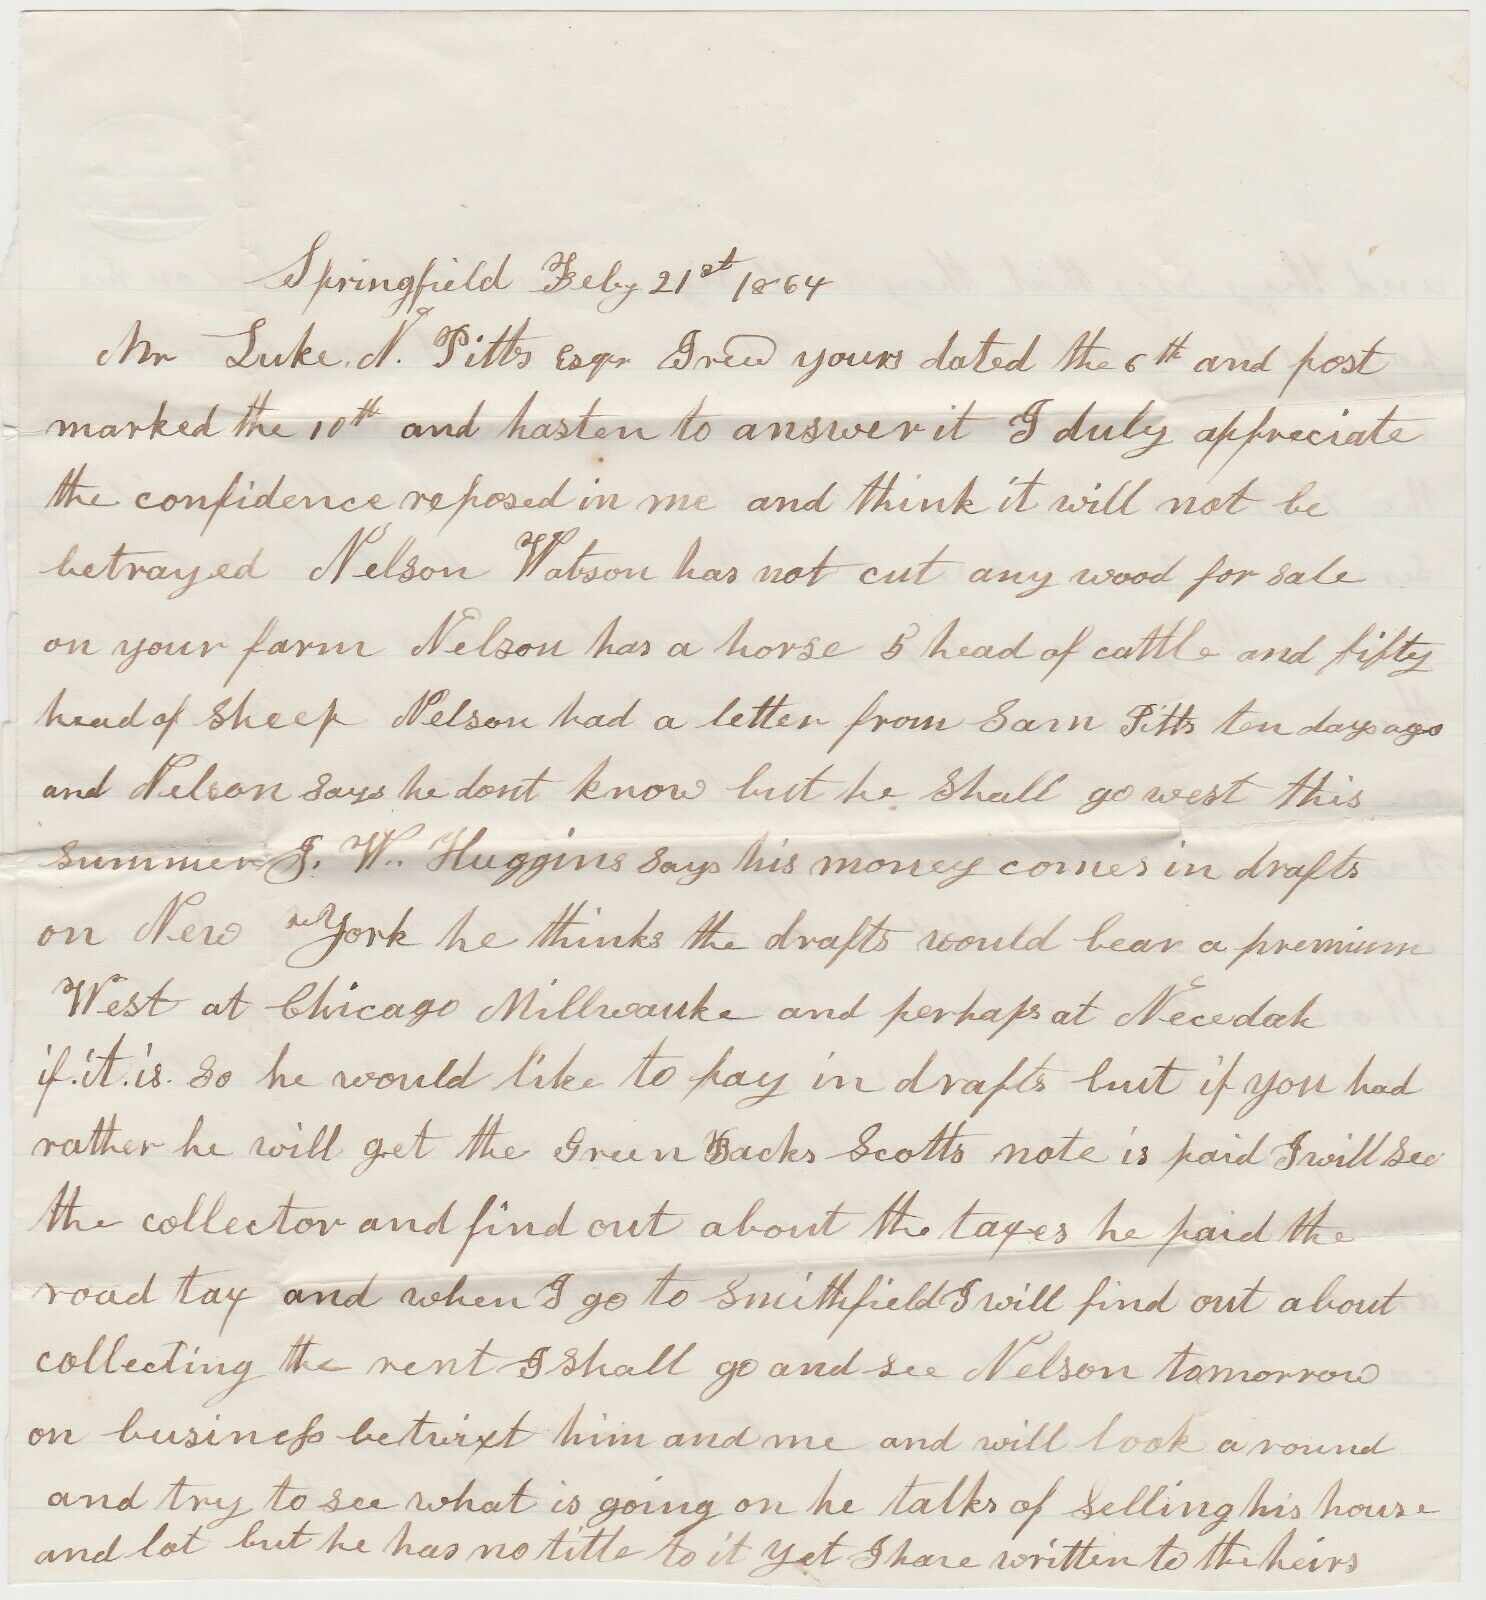 Springfield Feby 21st 1864
Mr Luke. N. Pitts Esqr I recd yours dated the 6th and post
marked the 10th and hasten to answer it I duly appreciate
the confidence reposed in me and think it will not be
betrayed Nelson Watson has not cut any wood for sale
on your farm Nelson has a horse 5 head of cattle and fifty
head of sheep Nelson had a letter from Sam Pitts ten days ago
and Nelson says he dont know but he shall go west this
summer J. W. Huggins says his money comes in drafts
on New York he thinks the drafts would bear a premium
West at Chicago Millwauke and perhaps at Necedah
if.it.is. so he would like to pay in drafts but if you had
rather he will get the Green Backs Scotts note is paid I will see
the collector and find out about the taxes he paid the
road tax and when I go to Smithfield I will find out about
collecting the rent I shall go and see Nelson tomorrow
on business betwixt him and me and will look a round
and try to see what is going on he talks of selling his house
and lot but he has no title to it yet I have written to the heirs